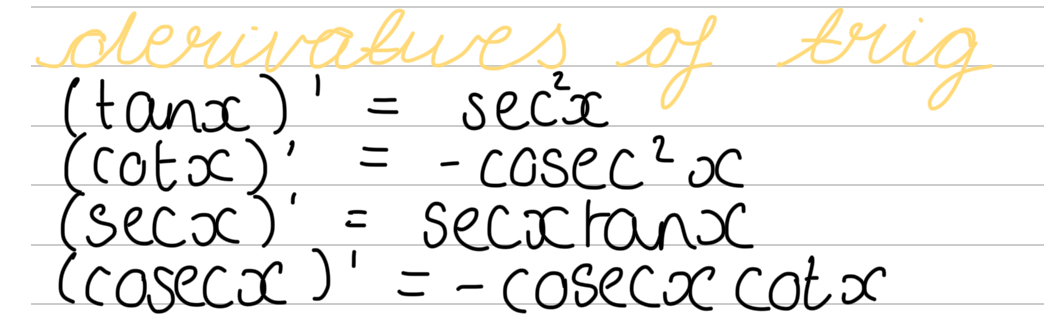 derivatives of trig
(tanx)' = sec²x
(cotx)' = -cosec²x
(secx)' = secxtanx
(cosecx)' = -cosecxcotx